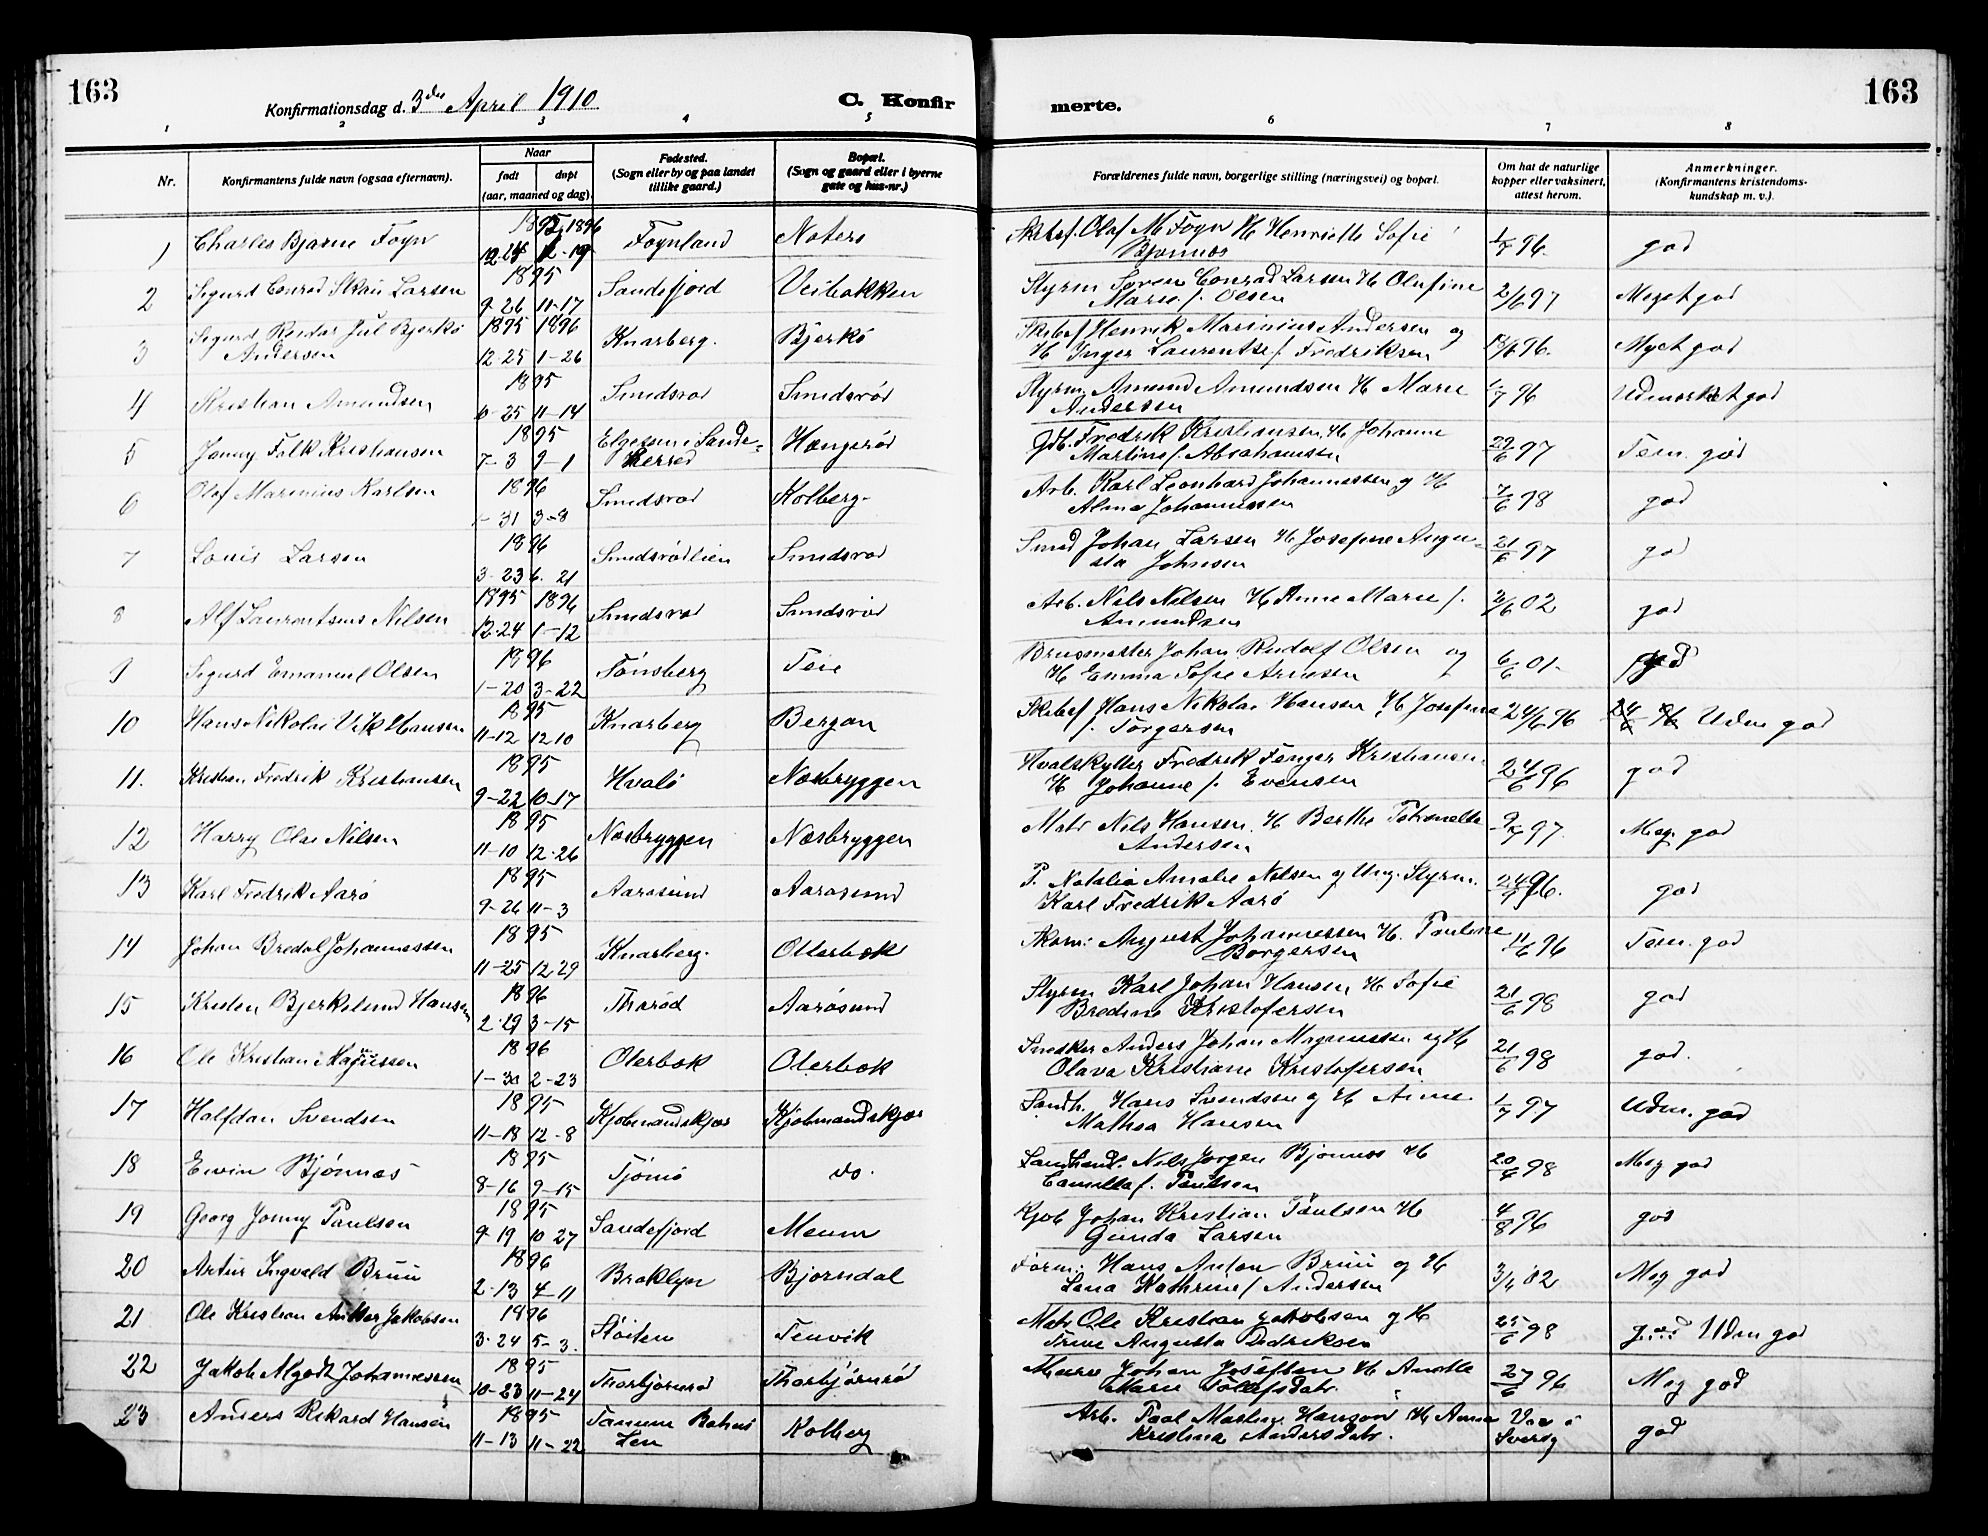 163
Konfirmationsdag d. 3die April 1910
C. Konfir
merte.
163
1 2 3 4 5 6 7 8
Nr.
Konfirmantens fulde navn (ogsaa efternavn).
Naar
født døpt
(aar, maaned og dag).
Fødested.
(Sogn eller by og paa landet
tillike gaard.)
Bopæl.
(Sogn og gaard eller i byerne
gate og hus-nr.)
Forældrenes fulde navn, borgerlige stilling (næringsvei) og bopæl.
Om hat de naturlige
kopper eller vaksinert,
attest herom.
Anmerkninger.
(Konfirmantens kristendoms-
kundskap m. v.).
1 Charles Bjarne Føyn 1895 1896 12-19 Føynland Noterø Skibsf. Olaf M Føyn H Henriette Sofie 1/7 96. god
Bjønnes
2 Sigurd Conrad Skau Larsen 1895 9-26 11-17 Sandefjord Veibakken Styrm Søren Conrad Larsen H Olufine 2/6 97 Meget god
Marie f. Olsen
3 Sigurd Reidar Jul Bjerkø 1895 1896 12-25 1-26 Knarberg. Bjerkø Skibsf Henrik Marinius Andersen og 96. Myet god
Andersen H Inger Laurentse f. Fredriksen
4 Kristian Amundsen 1895 6-25 11-14 Smedsrød Smedsrød Styrm. Amund Amundsen H Marie 1/7 96 Udmerket god
Anderssen
5 Jonny Falk Kristiansen 1895 7-3 9-1 i Sande- Hængsrød Fredrik Kristiansen, H Johanne 29/6 97 Tem. god
herred Martine f. Abrahamsen
6 Olaf Marinius Karlsen 1896 1-31 3-8 Smedsrød Kolberg. Arb. Karl Leonhard Johannessen og H 7/6 98 god
Alma Johannessen
7 Louis Larsen 1896 3-23 6-21 Smedsrødlien Smedsrød Smed Johan Larsen H Josefine Augu- 21/6 97 god
sta Johnsen
8 Alf Laurentsens Nilsen 1895 1896 12-24 1-12 Smedsrød Smedsrød Arb. Nils Nilsen H Anne Marie f. 2/6 02 god
Amundsen
9 Sigurd Emanuel Olsen 1896 1-20 3-22 Tønsberg Teie Brugmester Johan Rudolf Olsen og 6/6 01. god
H Emma Sofie Arnesen
10 Hans Nikolai Vik Hansen 1895 11-12 12 10 Knarberg Bergan Skibsf Hans Nikolai Hansen H Josefine 24/6 96 24/6 96 Udm god
f. Torgersen
11. Kristian Fredrik Kristiansen 1895 9-22 10-17 Hvalø Næsbryggen Hvalskytter Fredrik Fenger Kristiansen. 24/6 96 god
H Johanne f. Evensen
12 Harry Olai Nilsen 1895 11-10 12-26 Næsbryggen Næsbryggen Matr Nils Hansen H Berthe Tohanette 97. Meg. god
Andersen
13 Karl Fredrik Aarø 1895 9-26 11-3 Aarøsund Aarøsund P. Natalia Amalie Nilsen og Ung. Styrm. 24/9 96. god
Karl Fredrik Aarø
14 Johan Bredal Johannessen 1895 11-25 12 29 Knarberg. Oterbæk August Johannessen H. Pauline 11/6 96 Tem. god
Borgersen
15 Kristen Bjerkelund Hansen 1896 2-29 3-15 Thorød Aarøsund Styrm Karl Johan Hansen H Sofie 21/6 98 god
Bredine Kristofersen
16 Ole Kristian Magnussen 1896 1-30 2-23 Oterbæk Oterbæk Snedker Anders Johan Magnussen og H 21/6 98 god.
Olava Kristiane Kristofersen
17 Halfdan Svendsen 1895 11-18 12-8 Kjøbmandskjær Kjøbmandskjær Landh. Hans Svendsen og H Anne 1/7 97 Udm. god
Mathea Hansen
18 Ervin Bjønnæs 1895 8-16 9-15 Tjømø do. Landhand. Nils Jørgen Bjønnes H 20/6 98 Meg god
Camilla f. Paulsen
19 Georg Jonny Paulsen 1895 9-19 10 27 Sandefjord Meum Kjøb Johan Kristian Paulsen H 4/8 96 god
Gunda Larsen
20 Artur Ingvald Bruu 1896 2-13 4-11 Broklyn Bjørndal Form: Hans Anton Bruu og H 3/6 02 Meg god
Lena Kathrine f Andersen
21 Ole Kristian Anker Jakobsen 1896 3-24 5-3. Støiten Tenvik Matr Ole Kristian Jakobsen og H 25/6 98 god Udm god
Trine Augusta Dedriksen
22 Jakob Algodt Johannessen 1895 10-23 11-24 Thorbjørnrød Thorbjørnrød Murer Johan Josefsen H Anette 27/6 96 Meg god
Marie Tollefsdatr
23 Anders Rikard Hansen 1895 11-13 11-22 Tanum Bohus Kolberg Arb. Paal Martin Hanson H Anna Vac i god
Len Kristina Andersdatr. Sverig